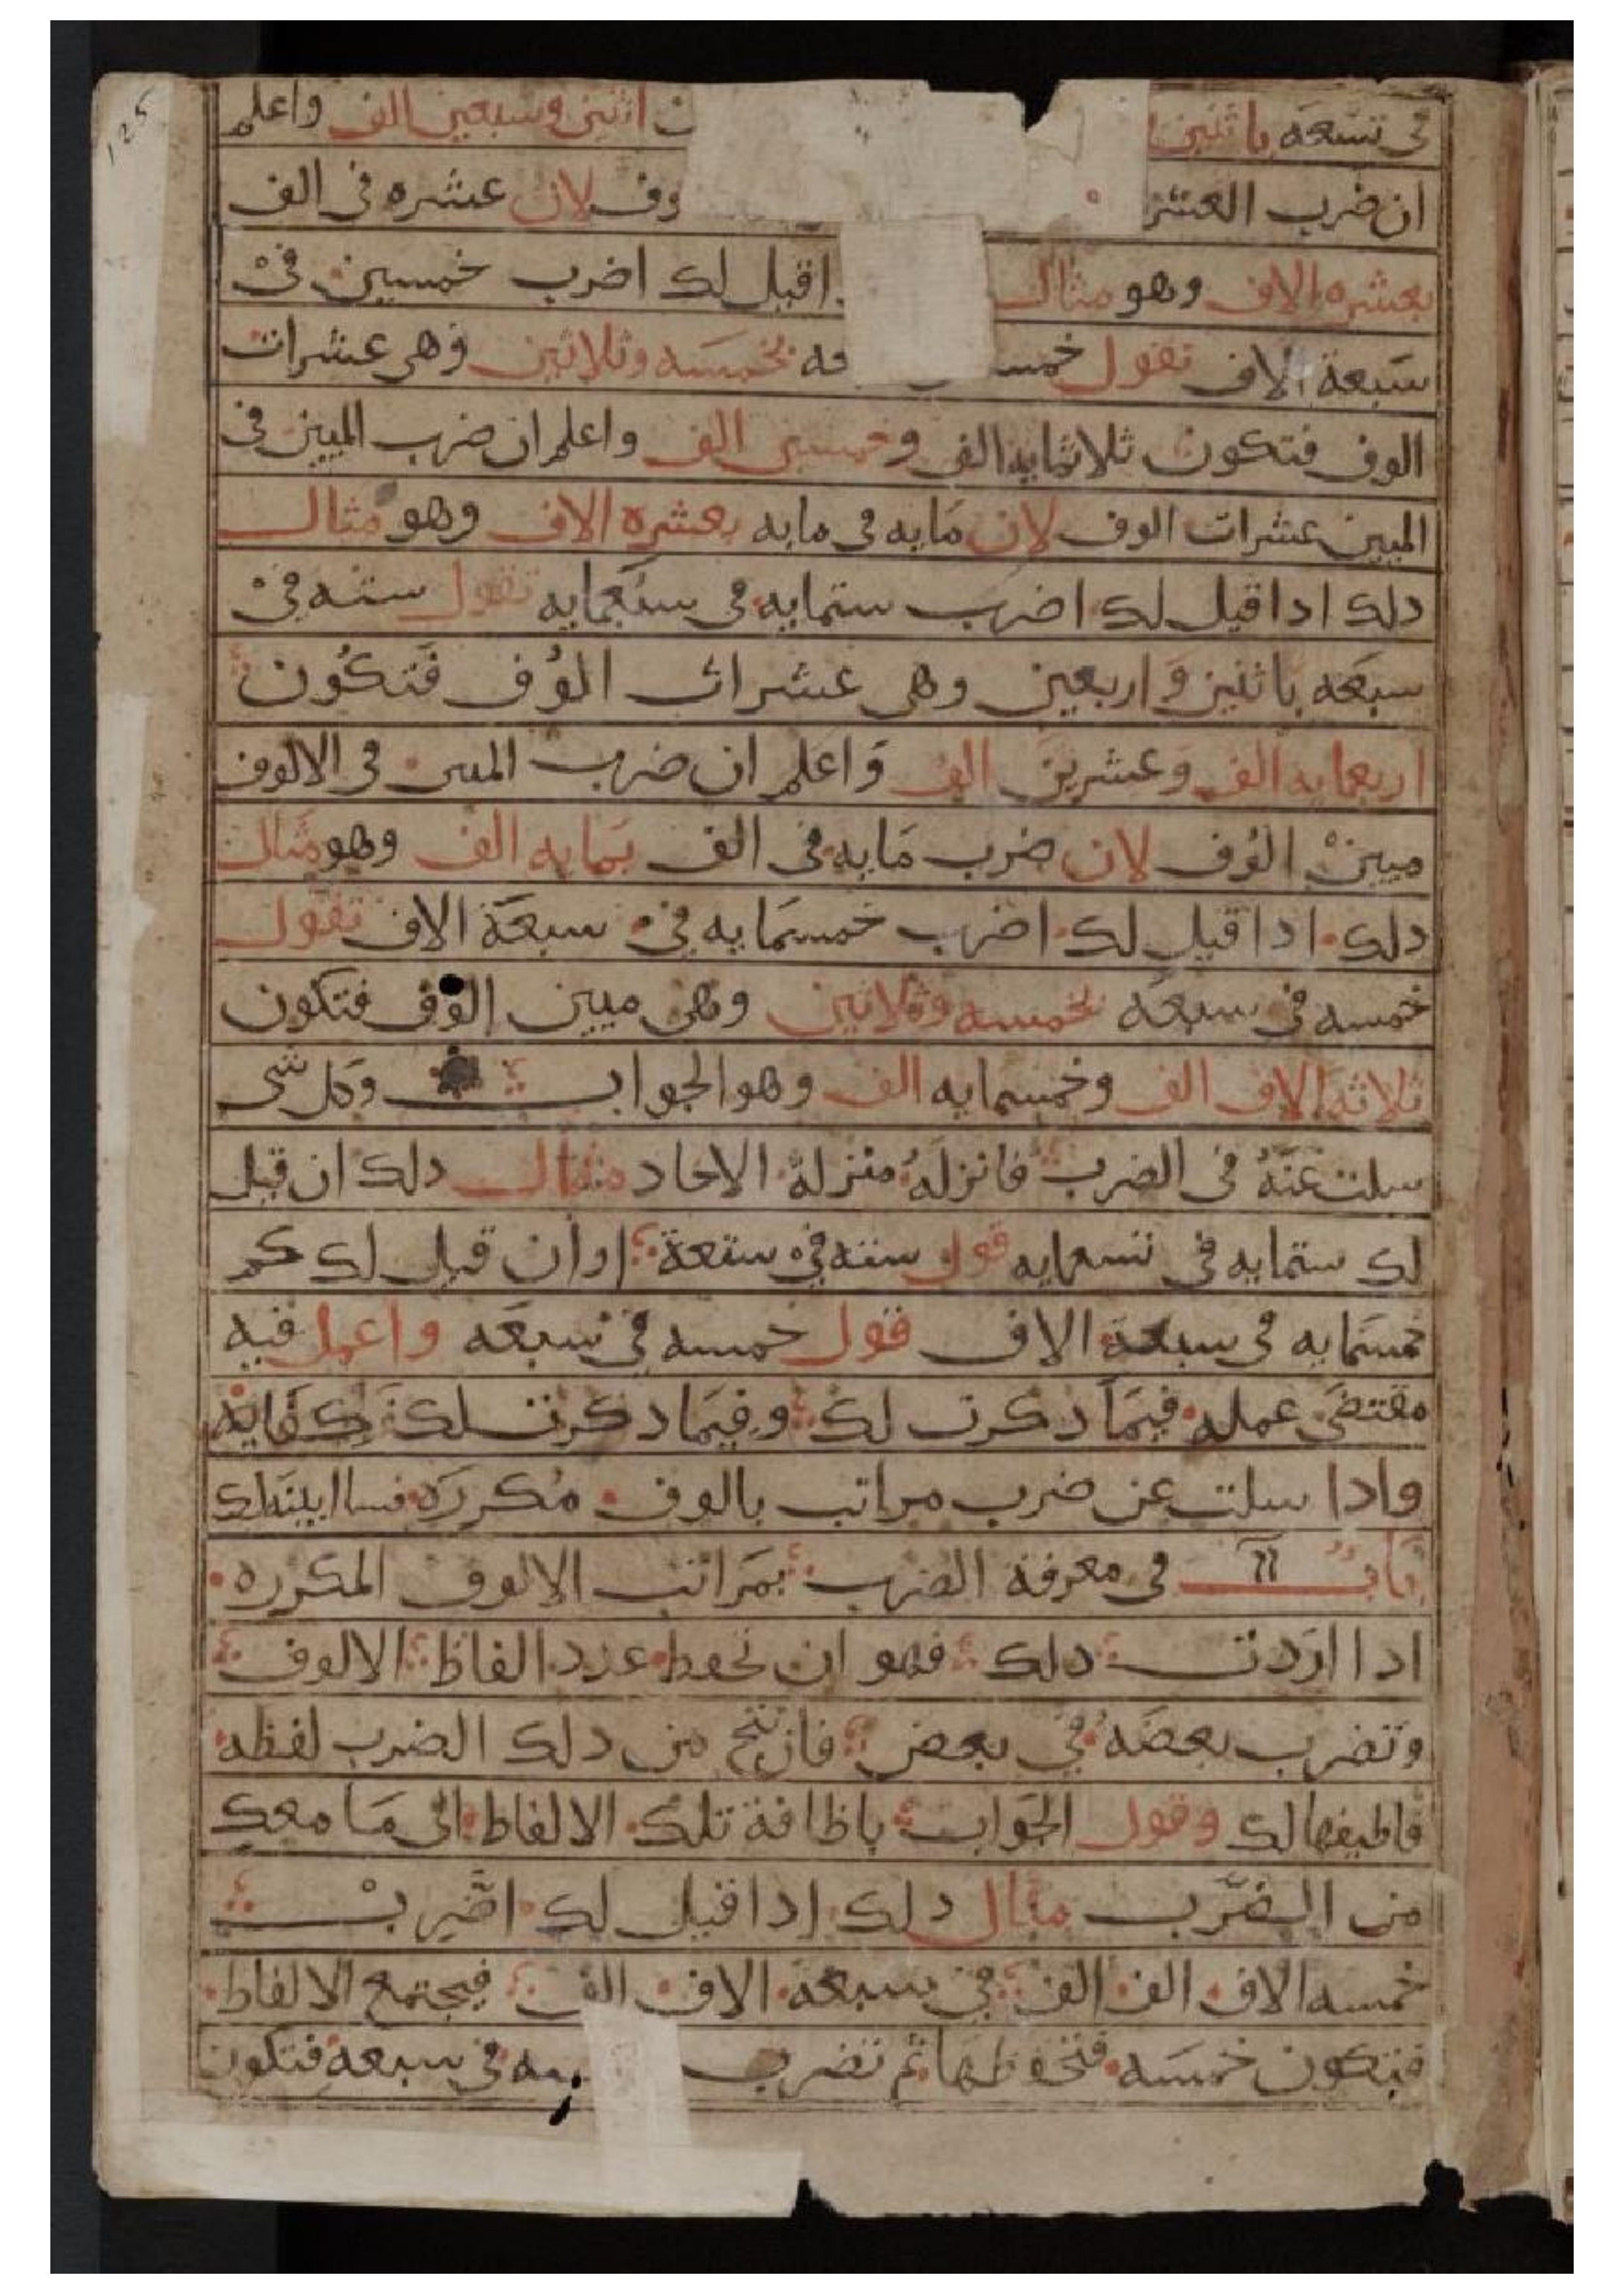 في تسعه باثنين ت اثنين وسبعين الف واعلم
ان ضرب العشر وف لان عشره في الف
بعشره الاف وهو مثال اقيل لك اضرب خمسين في
سبعة الاف تقول خمسه بخمسه وثلاثين وهي عشرات
الوف فتكون ثلاثمايه الف وخمسين الف واعلم ان ضرب الميين في
الميين عشرات الوف لان مايه في مايه بعشره الاف وهو مثال
دلك ادا قيل لك اضرب ستمايه في سبعمايه تقول سته في
سبعه باثنين واربعين وهي عشرات الوف فتكون
اربعمايه الف وعشرين الف واعلم ان ضرب المين في الالوف
ميين الوف لان ضرب مايه في الف بمايه الف وهو مثال
دلك ادا قيل لك اضرب خمسمايه في سبعة الاف تقول
خمسه في سبعه بخمسه وثلاثين وهي ميين الوف فتكون
ثلاثة الاف الف وخمسمايه الف وهو الجواب وكل شي
سلت عنه في الضرب فانزله منزلة الاحاد مثال دلك ان قيل
لك ستمايه في تسعمايه قول سته في ستعة اوان قيل لك كم
خمسمايه في سبعة الاف قول خمسه في سبعه واعمل فيه
مقتضى عمله فيما دكرت لك وفيما دكرت لك كفايه
وادا سلت عن ضرب مراتب بالوف مكرره فساابينه لك
باب في معرفة الضرب بمراتب الالوف المكرره
ادا اردت دلك فهو ان تحفظ عدد الفاظ الالوف
وتضرب بعضه في بعض فان نتج من دلك الضرب لفظه
فاظيفها لك وقول الجواب باظافة تلك الالفاظ الى ما معك
من الضرب مثال دلك ادا قيل لك اضرب
خمسه الاف الف الف في سبعة الاف الف فيجتمع الالفاظ
فيكون خمسه فتحفظها ثم تضرب سه في سبعه فتكون